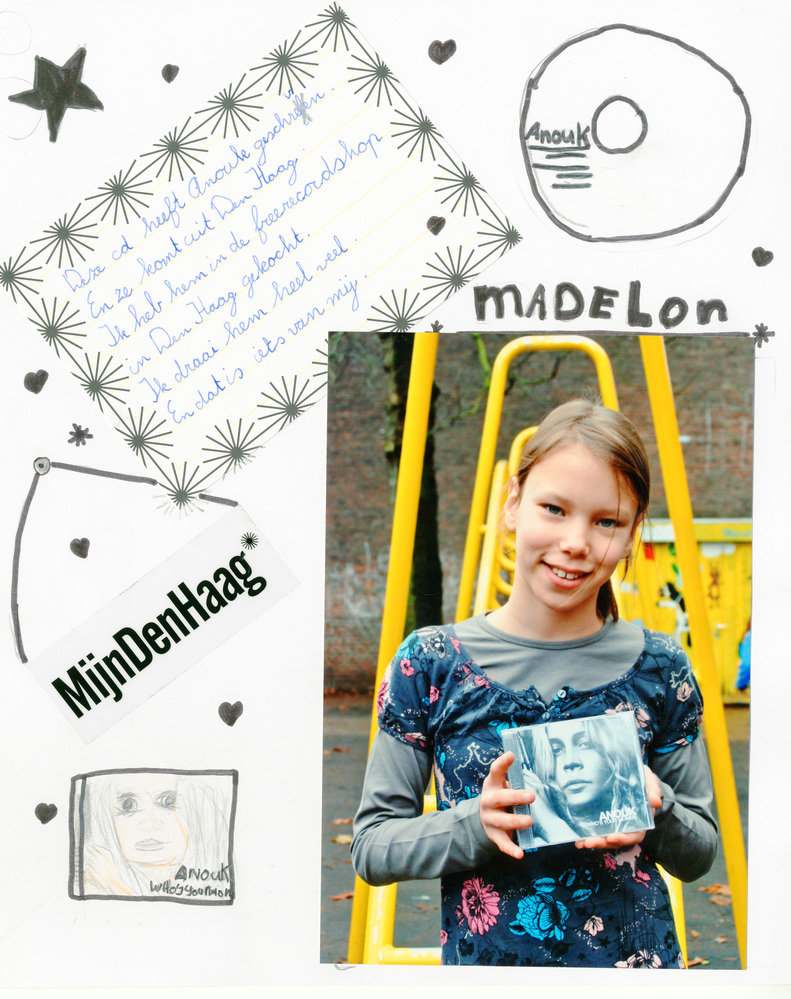 Deze cd heeft Anouk geschreven.
En ze komt uit Den Haag.
Ik heb hem in de freerecordshop
in Den Haag gekocht.
Ik draai hem heel veel.
En dat is iets van mij.
Anouk
MADELON
MijnDenHaag
ANOUK
ANOUK